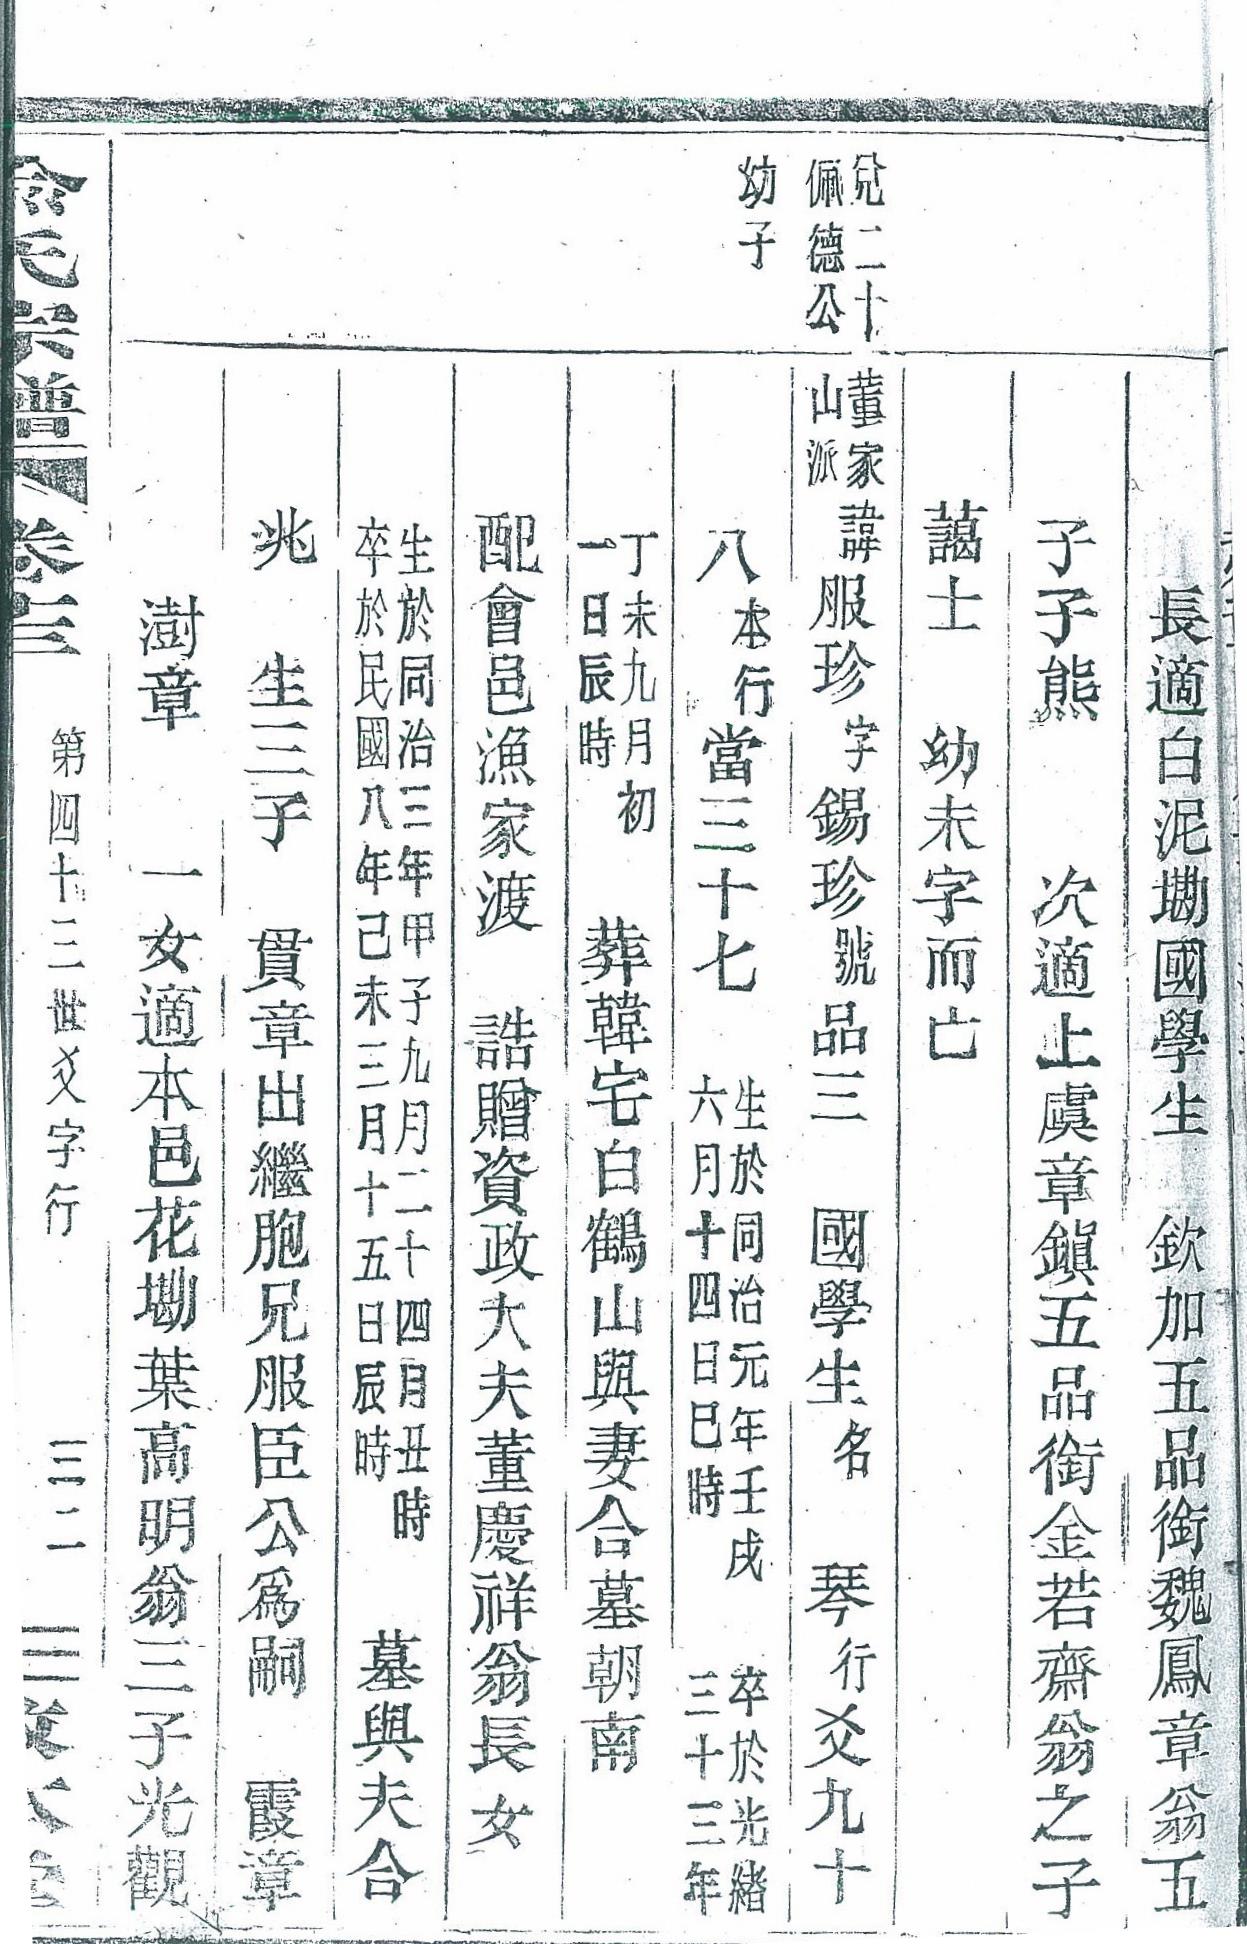 長適白泥墈國學生 欽加五品銜魏鳳章翁五
子子熊 次適上虞章鎭五品銜金若齋翁之子
藹士 幼未字而亡
兌二十
佩德公
幼子
董家
山派
諱服珍字錫珍號品三 國學生名 琴行爻九十
八本行當三十七 生於同治元年壬戌
六月十四日巳時 卒於光緒
三十三年
丁未九月初
一日辰時 葬韓宅白鶴山與妻合墓朝南
配會邑漁家渡 誥贈資政大夫董慶祥翁長女
生於同治三年甲子九月二十四月丑時
卒於民國八年己未三月十五日辰時 墓與夫合
兆 生三子 貫章出繼胞兄服臣公爲嗣 霞章
澍章 一女適本邑花墈葉高明翁三子光觀
俞氏宗譜 卷三 第四十三世爻字行 三二